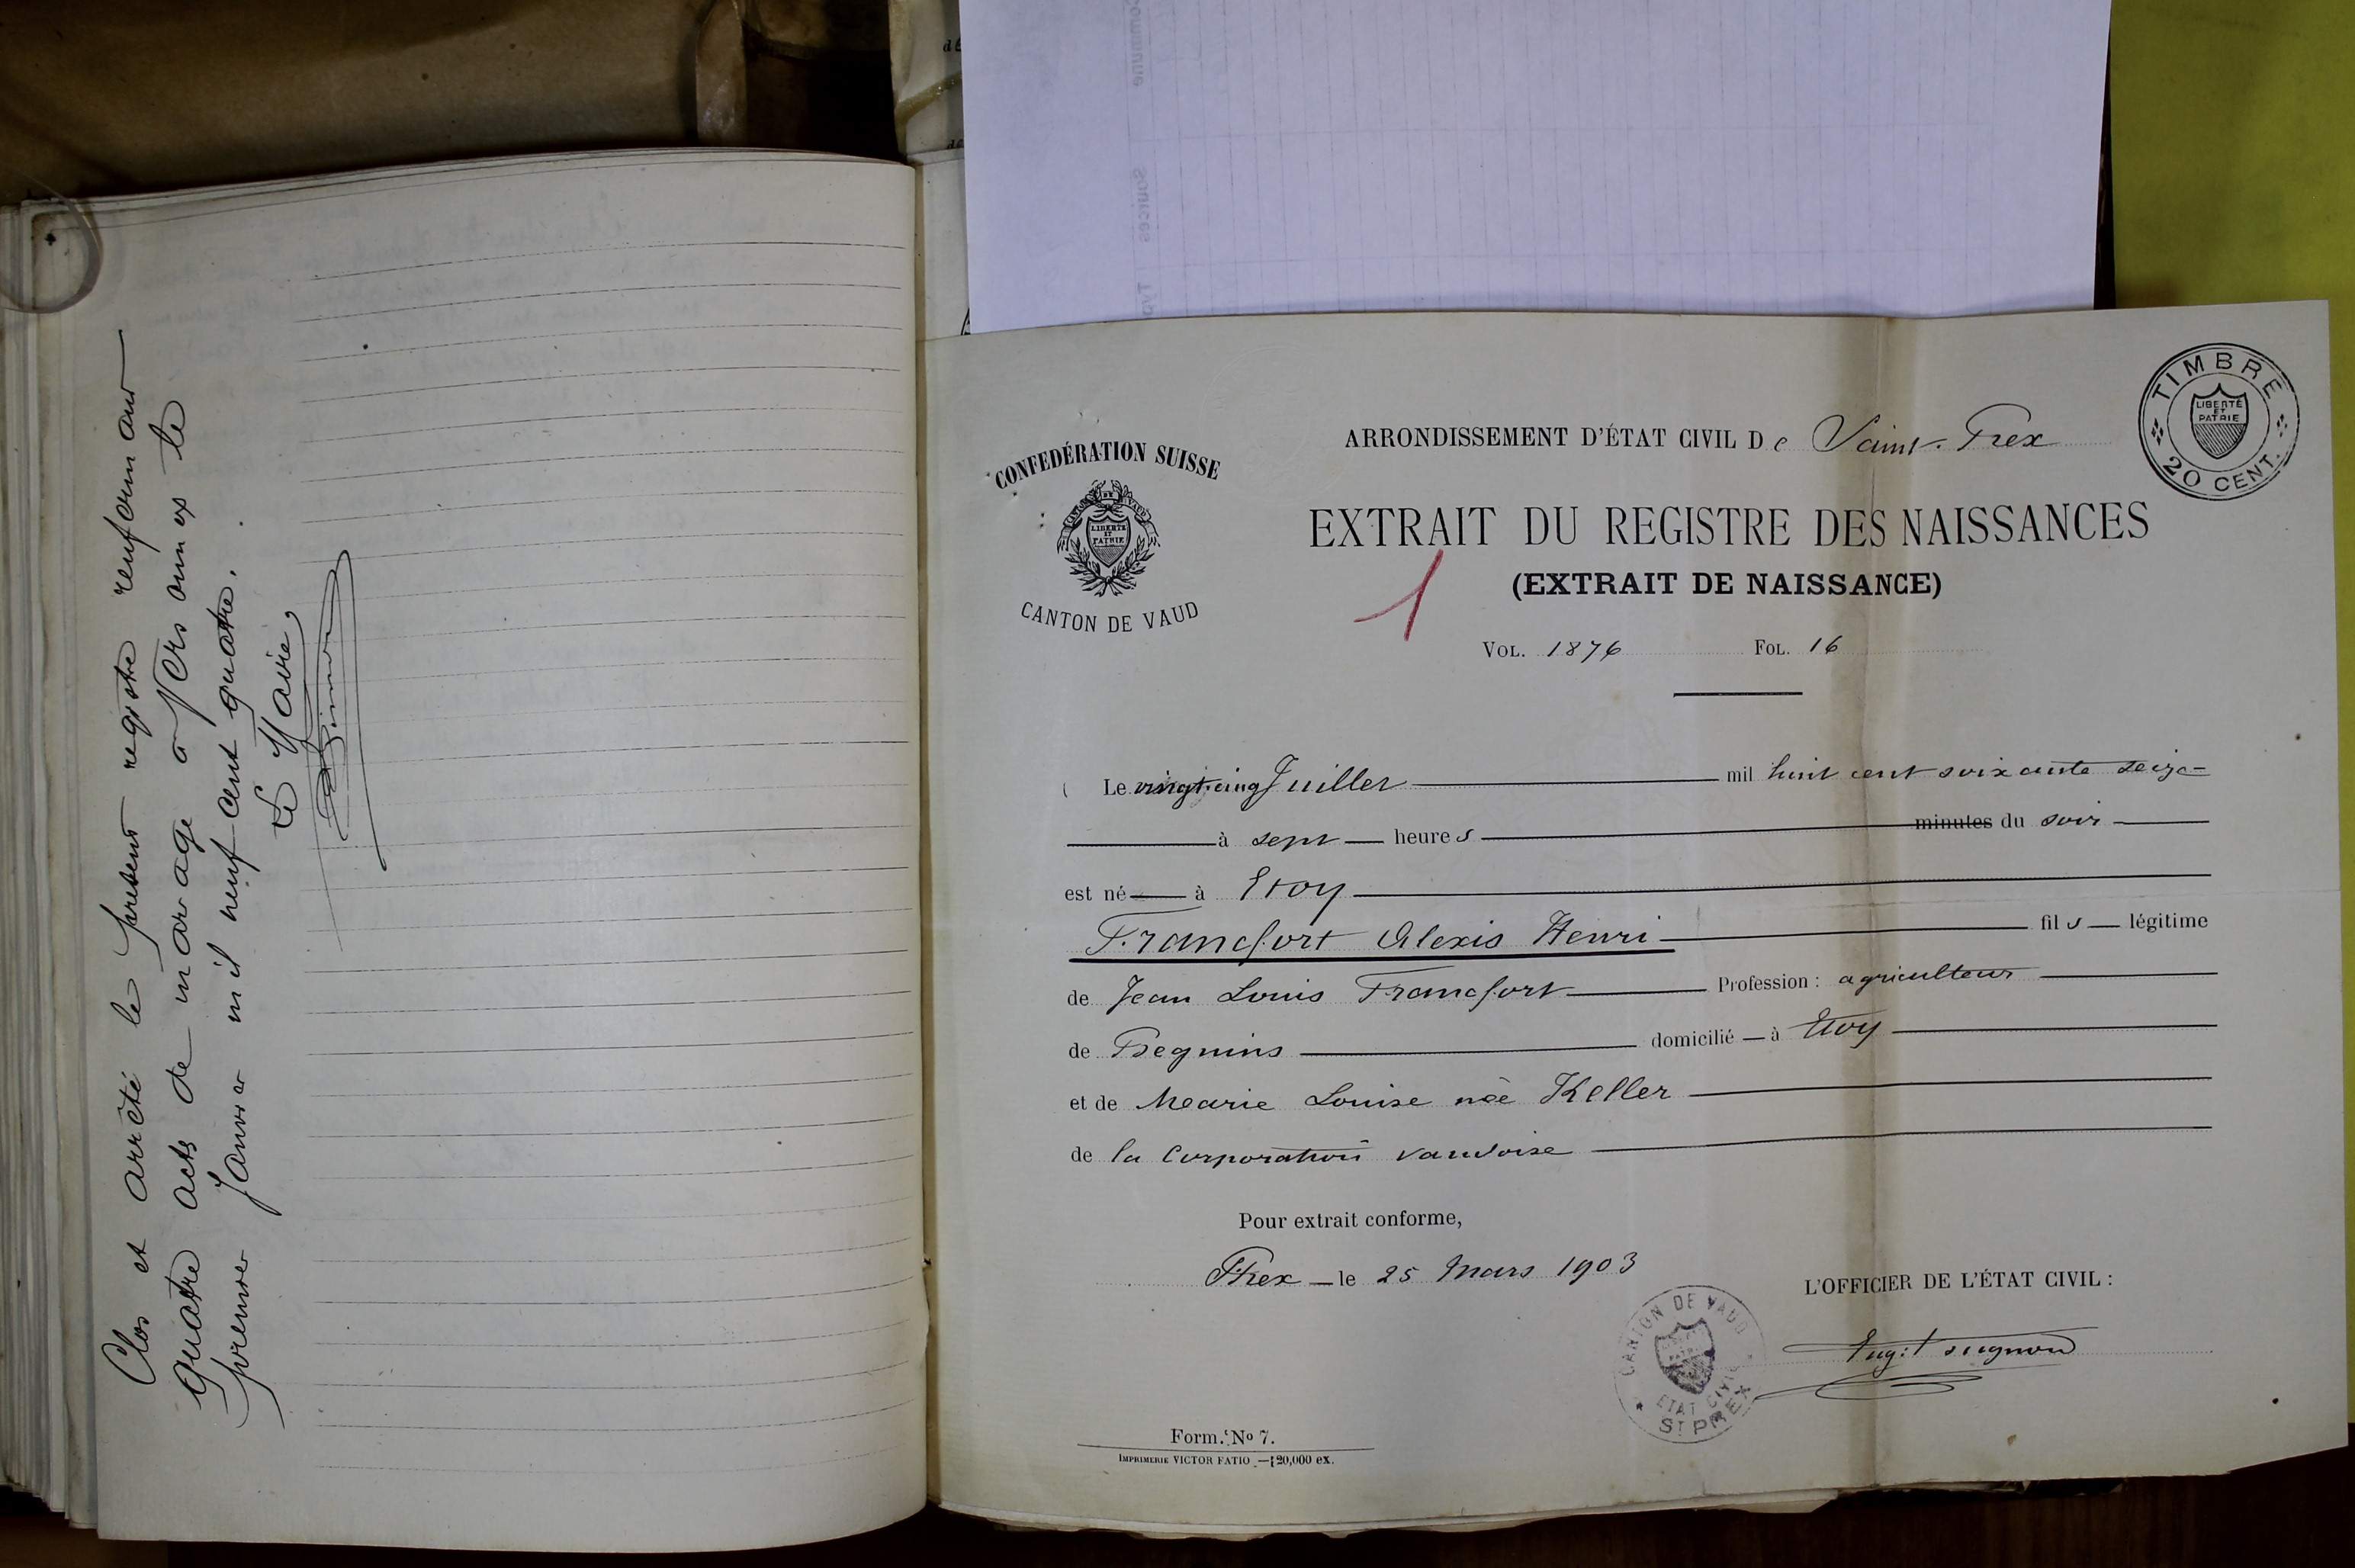 Clos et arrêté le présent registre renfermant
quatre acts de mariage à Vers ames le
premier Janvier mil neuf cent quatre.
Le Maire,
CONFEDÉRATION SUISSE
LIBERTÉ ET PATRIE
CANTON DE VAUD
ARRONDISSEMENT D'ÉTAT CIVIL De Saint-Prex
TIMBRE
LIBERTÉ
ET
PATRIE
20 CENT.
EXTRAIT DU REGISTRE DES NAISSANCES
(EXTRAIT DE NAISSANCE)
1
VOL. 1876 FOL. 16
Le vingt-cinq Juillet mil huit cent soixante seize
à sept heures minutes du soir
est né à Etoy
Francfort Alexis Henri fils légitime
de Jean Louis Francfort Profession : agriculteur
de Begnins domicilié à Etoy
et de Marie Louise née Keller
de la Corporation vaudoise
Pour extrait conforme,
Prex le 25 Mars 1903
L'OFFICIER DE L'ÉTAT CIVIL :
CANTON DE VAUD
ETAT CIVIL
ST PREX
Form. No 7.
IMPRIMERIE VICTOR FATIO — 20,000 ex.
commune
Sources